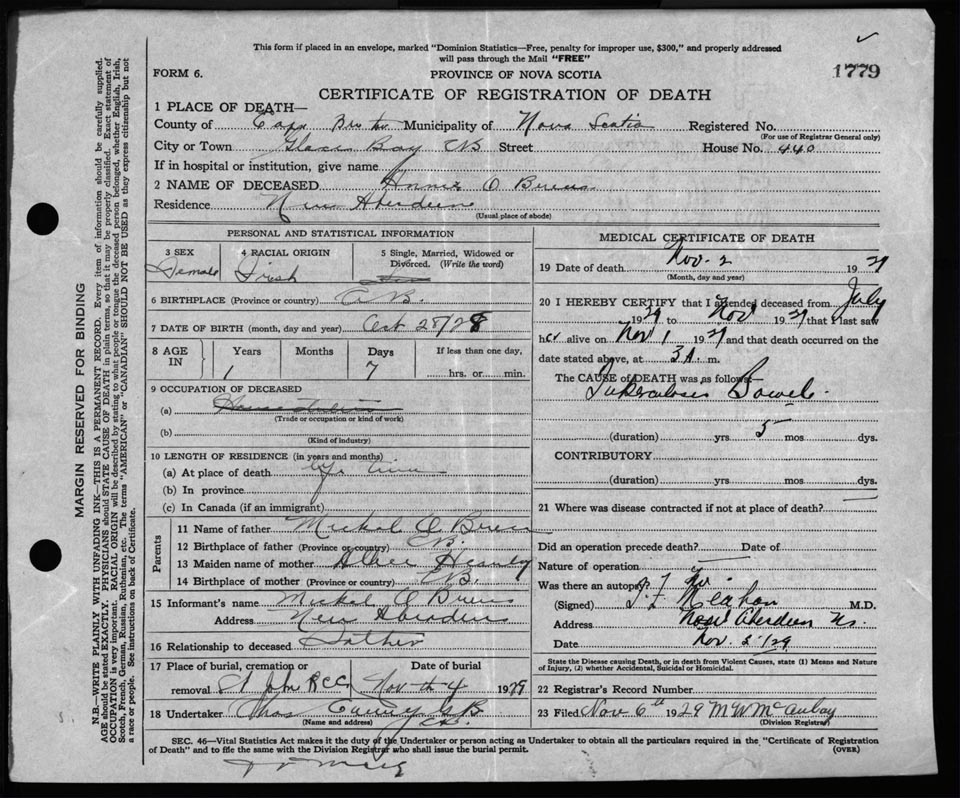 This form if placed in an envelope, marked "Dominion Statistics—Free, penalty for improper use, $300," and properly addressed
will pass through the Mail "FREE"
FORM 6.
PROVINCE OF NOVA SCOTIA
1779
CERTIFICATE OF REGISTRATION OF DEATH
1 PLACE OF DEATH—
County of Cape Breton Municipality of Nova Scotia Registered No.
(For use of Registrar General only)
City or Town Glace Bay CB Street House No. 440
If in hospital or institution, give name
2 NAME OF DECEASED Annie O Briens
Residence New Aberdeen
(Usual place of abode)
PERSONAL AND STATISTICAL INFORMATION
3 SEX Female
4 RACIAL ORIGIN Irish
5 Single, Married, Widowed or Divorced. (Write the word)
6 BIRTHPLACE (Province or country) C B.
7 DATE OF BIRTH (month, day and year) Oct 28/28
8 AGE IN Years Months Days If less than one day,
1 7 hrs. or min.
9 OCCUPATION OF DECEASED
(a)
(Trade or occupation or kind of work)
(b)
(Kind of industry)
10 LENGTH OF RESIDENCE (in years and months)
(a) At place of death life time
(b) In province
(c) In Canada (if an immigrant)
Parents
11 Name of father Mickal O Briens
12 Birthplace of father (Province or country) CB.
13 Maiden name of mother
14 Birthplace of mother (Province or country) CB.
15 Informant's name Mickal O Briens
Address New Aberdeen
16 Relationship to deceased Father
17 Place of burial, cremation or removal St John RCC
Date of burial Nov th 4 1929
18 Undertaker Thos GB
(Name and address)
MEDICAL CERTIFICATE OF DEATH
19 Date of death Nov. 2 1929
(Month, day and year)
20 I HEREBY CERTIFY that I attended deceased from July
1929 to Nov 1929 that I last saw
her alive on Nov 1 1929 and that death occurred on the
date stated above, at 3 A. m.
The CAUSE of DEATH was as follows:
Tuberculosis Bowels.
(duration) yrs 5 mos dys.
CONTRIBUTORY
(duration) yrs mos dys.
21 Where was disease contracted if not at place of death?
Did an operation precede death? Date of
Nature of operation
Was there an autopsy? No
(Signed) M.D.
Address New Aberdeen NS.
Date Nov. 2/29
State the Disease causing Death, or in death from Violent Causes, state (1) Means and Nature
of Injury, (2) whether Accidental, Suicidal or Homicidal.
22 Registrar's Record Number
23 Filed Nov 6th 1929 M W McAulay
(Division Registrar)
SEC. 46—Vital Statistics Act makes it the duty of the Undertaker or person acting as Undertaker to obtain all the particulars required in the "Certificate of Registration
of Death" and to file the same with the Division Registrar who shall issue the burial permit.
(OVER)
MARGIN RESERVED FOR BINDING
N.B.—WRITE PLAINLY WITH UNFADING INK—THIS IS A PERMANENT RECORD. Every item of information should be carefully supplied.
AGE should be stated EXACTLY. PHYSICIANS should STATE CAUSE OF DEATH in plain terms, so that it may be properly classified. Exact statement of
OCCUPATION is very important. RACIAL ORIGIN will be described by stating to what people or tongue the deceased person belonged, whether English, Irish,
Scotch, French, German, Russian, Ruthenian, etc. The terms "AMERICAN" or "CANADIAN" SHOULD NOT BE USED as they express citizenship but not
a race or people. See instructions on back of Certificate.